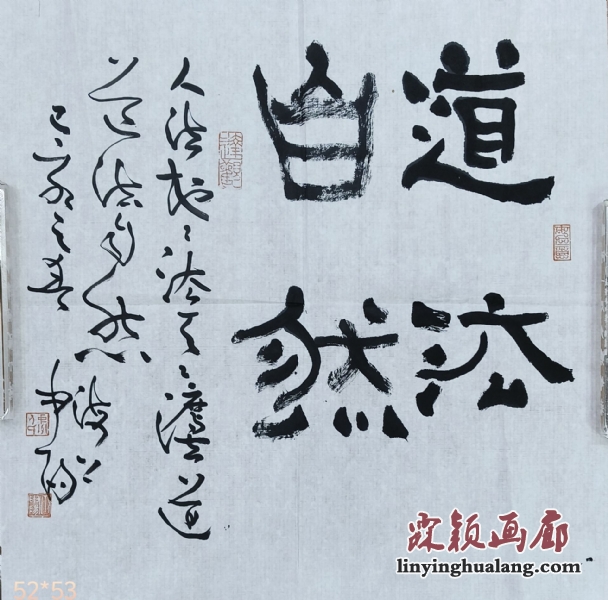 道法
自然
人法地〻法天〻法道
道法自然
己亥之春
霖颖画廊
linyinghualang.com
52*53